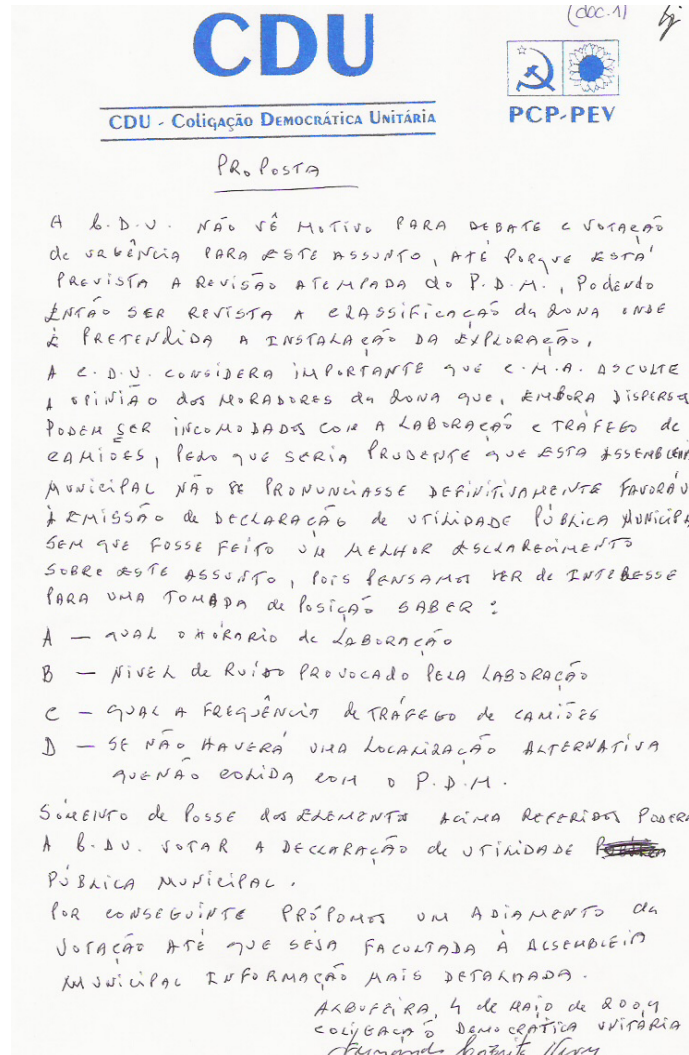 (doc.1)
CDU
CDU - Coligação Democrática Unitária
PCP-PEV
PROPOSTA
A C.D.U. NÃO VÊ MOTIVO PARA DEBATE E VOTAÇÃO
de URGÊNCIA PARA ESTE ASSUNTO, ATÉ PORQUE ESTÁ
PREVISTA A REVISÃO ATEMPADA do P.D.M., PODENDO
ENTÃO SER REVISTA A CLASSIFICAÇÃO da ZONA ONDE
É PRETENDIDA A INSTALAÇÃO DA EXPLORAÇÃO.
A C.D.U. CONSIDERA IMPORTANTE QUE C.M.A. ASCULTE
A OPINIÃO dos MORADORES da ZONA QUE, EMBORA DISPERSOS
PODEM SER INCOMODADOS COM A LABORAÇÃO E TRÁFEGO de
CAMIÕES, PELO QUE SERIA PRUDENTE QUE ESTA ASSEMBLEIA
MUNICIPAL NÃO SE PRONUNCIASSE DEFINITIVAMENTE FAVORÁV
À EMISSÃO de DECLARAÇÃO de UTILIDADE PÚBLICA MUNICIPA
SEM QUE FOSSE FEITO UM MELHOR ESCLARECIMENTO
SOBRE ESTE ASSUNTO, POIS PENSAMOS SER de INTERESSE
PARA UMA TOMADA de POSIÇÃO SABER:
A — QUAL O HORÁRIO de LABORAÇÃO
B — NÍVEL de RUÍDO PROVOCADO PELA LABORAÇÃO
C — QUAL A FREQUÊNCIA de TRÁFEGO de CAMIÕES
D — SE NÃO HAVERÁ UMA LOCALIZAÇÃO ALTERNATIVA
QUE NÃO COLIDA COM O P.D.M.
SÓMENTO de POSSE dos ELEMENTOS ACIMA REFERIDOS PODERÁ
A C.D.U. VOTAR A DECLARAÇÃO de UTILIDADE
PÚBLICA MUNICIPAL.
POR CONSEGUINTE PRÓPOMOS UM ADIAMENTO da
VOTAÇÃO ATÉ QUE SEJA FACULTADA À ASSEMBLEIA
MUNICIPAL INFORMAÇÃO MAIS DETALHADA.
ALBUFEIRA, 4 de MAIO de 2009
COLIGAÇÃO DEMOCRÁTICA UNITÁRIA
Fernando